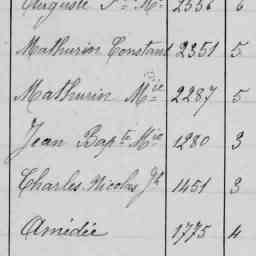 Auguste Fs Me 2556 6
Mathurin Constant 2351 5
Mathurin Mie 2287 5
Jean Bapte Mie 1280 3
Charles Nicolas Jh 1451 3
Amédée 1775 4